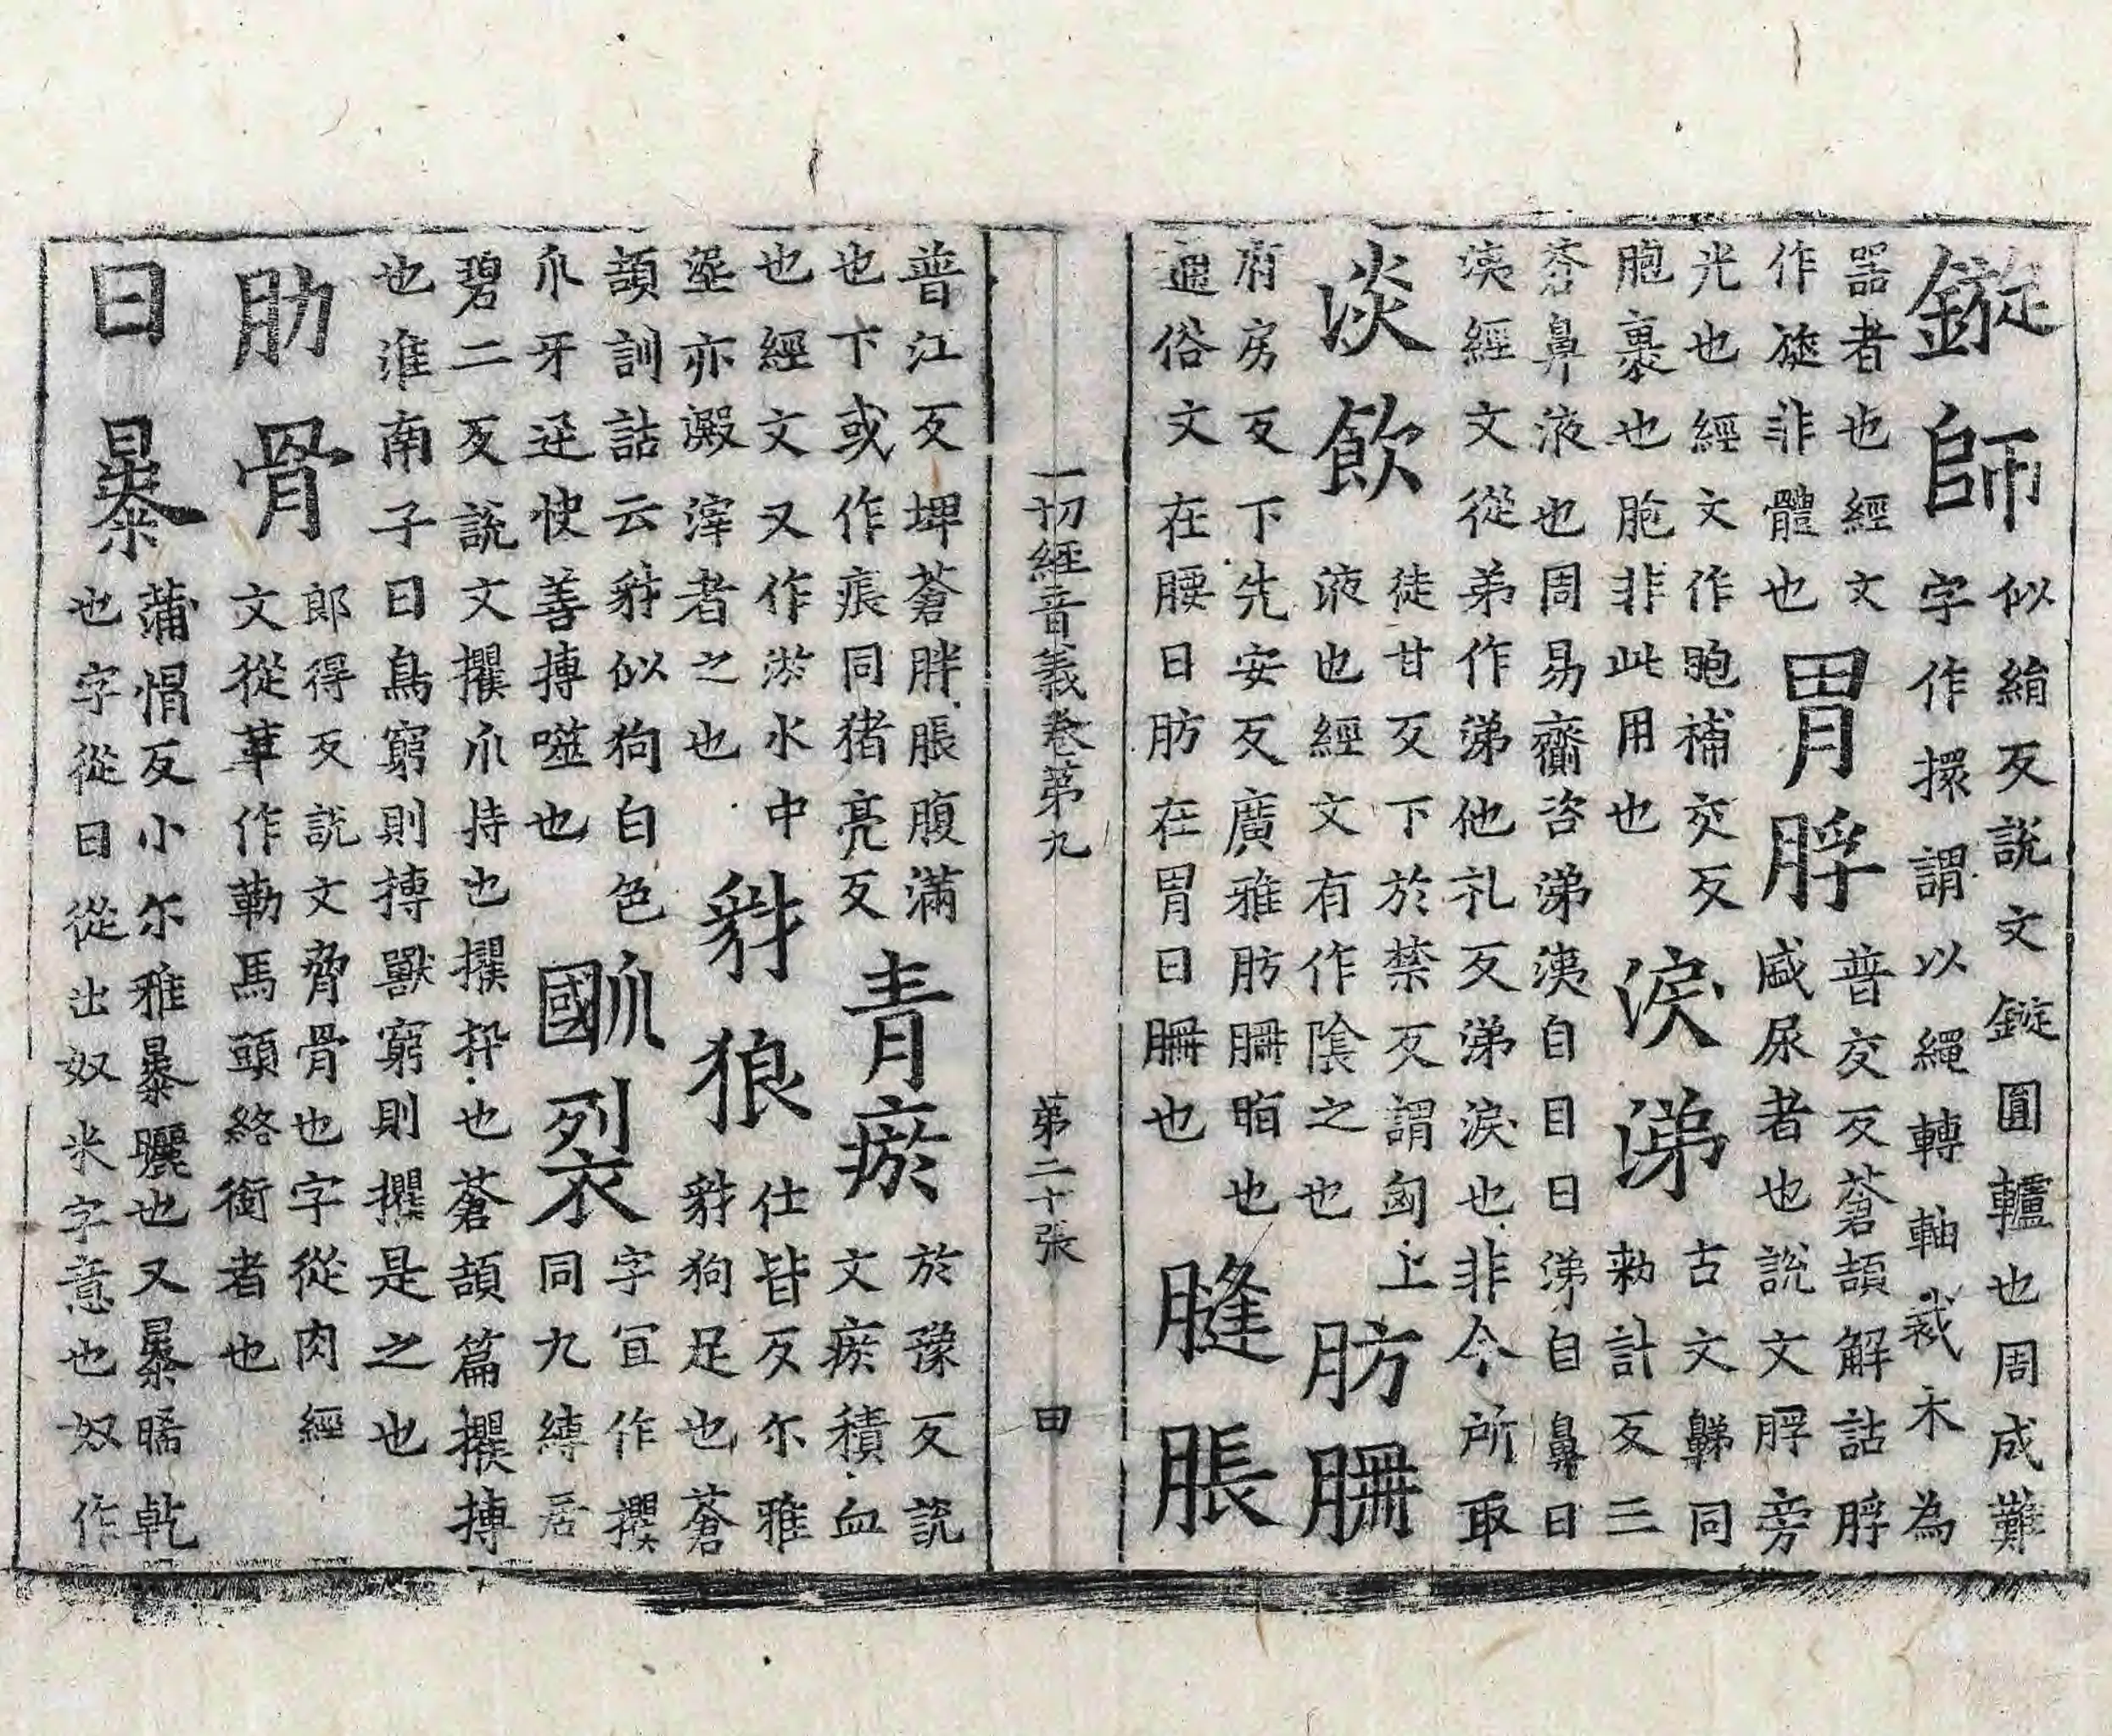 鏇師 似絹反說文鏇圓轤也周成難
字作㨙謂以繩轉軸裁木為
器者也經文
作旋非體也 胃脬 普交反蒼頡解詁脬
盛尿者也說文脬旁
光也經文作胞補交反
胞裹也胞非此用也 淚涕 古文𪖦同
勑計反三
蒼鼻液也周易齎咨涕洟自目曰涕自鼻曰
洟經文從弟作涕他礼反涕淚也非今所取
淡飲 徒甘反下於禁反謂匈上
液也經文有作陰之也 肪𦙱
府房反下先安反廣雅肪𦙱脂也
通俗文在腰曰肪在胃曰𦙱也 膖脹
普江反埤蒼胖脹腹滿
也下或作痮同猪亮反 青瘀 於豫反說
文瘀積血
也經文又作淤水中
埿亦澱滓者之也 豺狼 仕皆反尔雅
豺狗足也蒼
頡訓詁云豺似狗白色
爪牙迅快善搏噬也 𤔩裂 字冝作攫
同九縛居
碧二反說文攫爪持也攫𢪏也蒼頡篇攫搏
也淮南子曰鳥窮則搏獸窮則攫是之也
肋骨 郎得反說文脅骨也字從肉經
文從革作勒馬頭絡銜者也
日暴 蒲㥌反小尔雅暴曬也又暴晞乾
也字從日從出奴米字意也奴作
一切經音義卷第九 第二十張 田